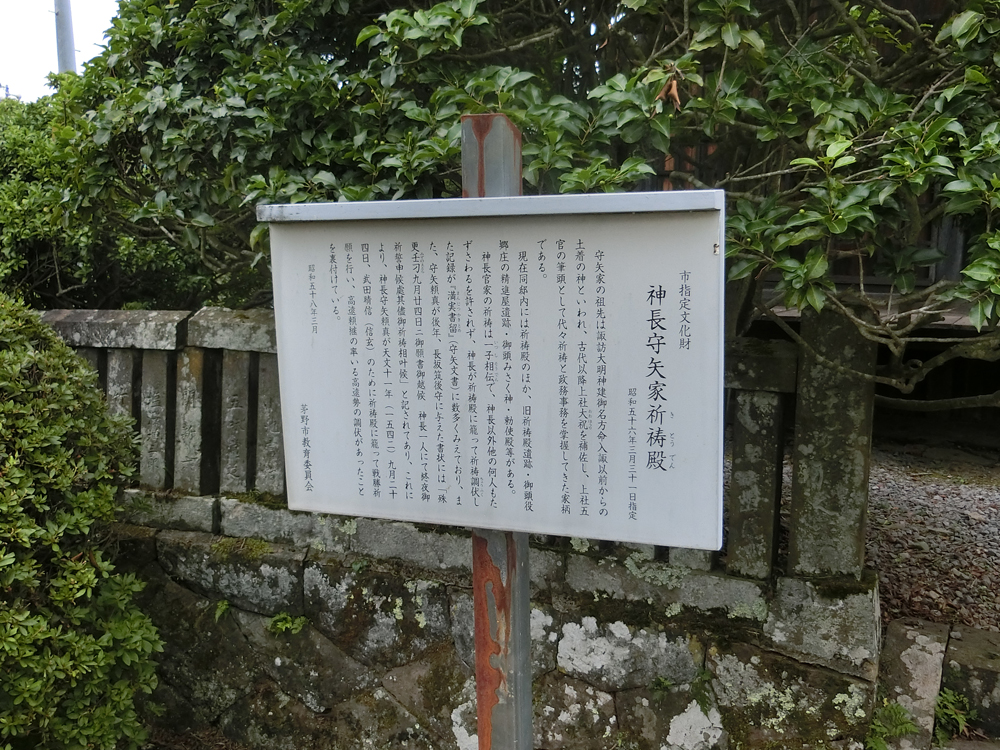 市指定文化財
神長守矢家祈祷殿
きとうでん
昭和五十六年三月三十一日指定
守矢家の祖先は諏訪大明神建御名方命入諏以前からの
土着の神といわれ、古代以降上社大祝を補佐し、上社五
官の筆頭として代々祈祷と政務事務を掌握してきた家柄
である。
現在同邸内には祈祷殿のほか、旧祈祷殿遺跡・御頭役
郷庄の精進屋遺跡・御頭みさく神・勅使殿等がある。
神長官家の祈祷は一子相伝で、神長以外他の何人もた
ずさわるを許されず、神長が祈祷殿に籠って祈祷調伏し
た記録が『満実書留』（守矢文書）に数多くみえており、ま
た、守矢頼真が後年、長坂筑後守に与えた書状には「殊
更壬刁九月廿四日ニ御願書御越候　神長一人にて終夜御
祈誓申候處其儘御祈祷相叶候」と記されてあり、これに
より、神長守矢頼真が天文十一年（一五四二）九月二十
四日、武田晴信（信玄）のために祈祷殿に籠って戦勝祈
願を行い、高遠頼継の率いる高遠勢の調伏があったこと
を裏付けている。
昭和五十八年三月
茅野市教育委員会